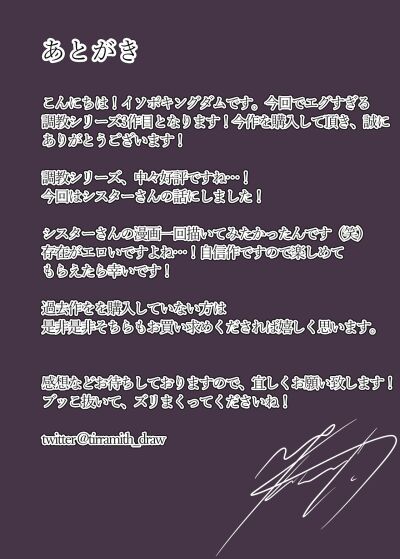 あとがき
こんにちは！イソボキングダムです。今回でエグすぎる
調教シリーズ3作目となります！今作を購入して頂き、誠に
ありがとうございます！
調教シリーズ、中々好評ですね…！
今回はシスターさんの話にしました！
シスターさんの漫画一回描いてみたかったんです（笑）
存在がエロいですよね…！自信作ですので楽しめて
もらえたら幸いです！
過去作をを購入していない方は
是非是非そちらもお買い求めくだされば嬉しく思います。
感想などお待ちしておりますので、宜しくお願い致します！
ブッこ抜いて、ズリまくってくださいね！
twitter＠tirramith_draw